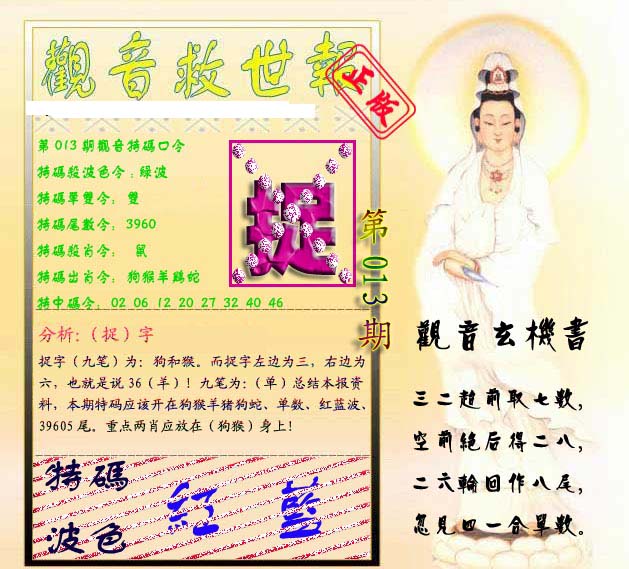 觀音救世報
正版
第013期觀音特碼口令
特碼殺波色令：綠波
特碼單雙令： 雙
特碼尾數令： 3960
特碼殺肖令： 鼠
特碼出肖令： 狗猴羊鷄蛇
特中碼令： 02 06 12 20 27 32 40 46
捉
第013期
分析:（捉）字
捉字（九笔）为：狗和猴。而捉字左边为三，右边为
六，也就是说36（羊）！九笔为：（单）总结本报资
料，本期特码应该开在狗猴羊猪狗蛇、单数、红蓝波、
39605尾。重点两肖应放在（狗猴）身上！
特碼
波色
紅 藍
觀音玄機書
三二趙前取七數,
空前絕后得二八,
二六輪回作八尾,
忽見四一合單數。